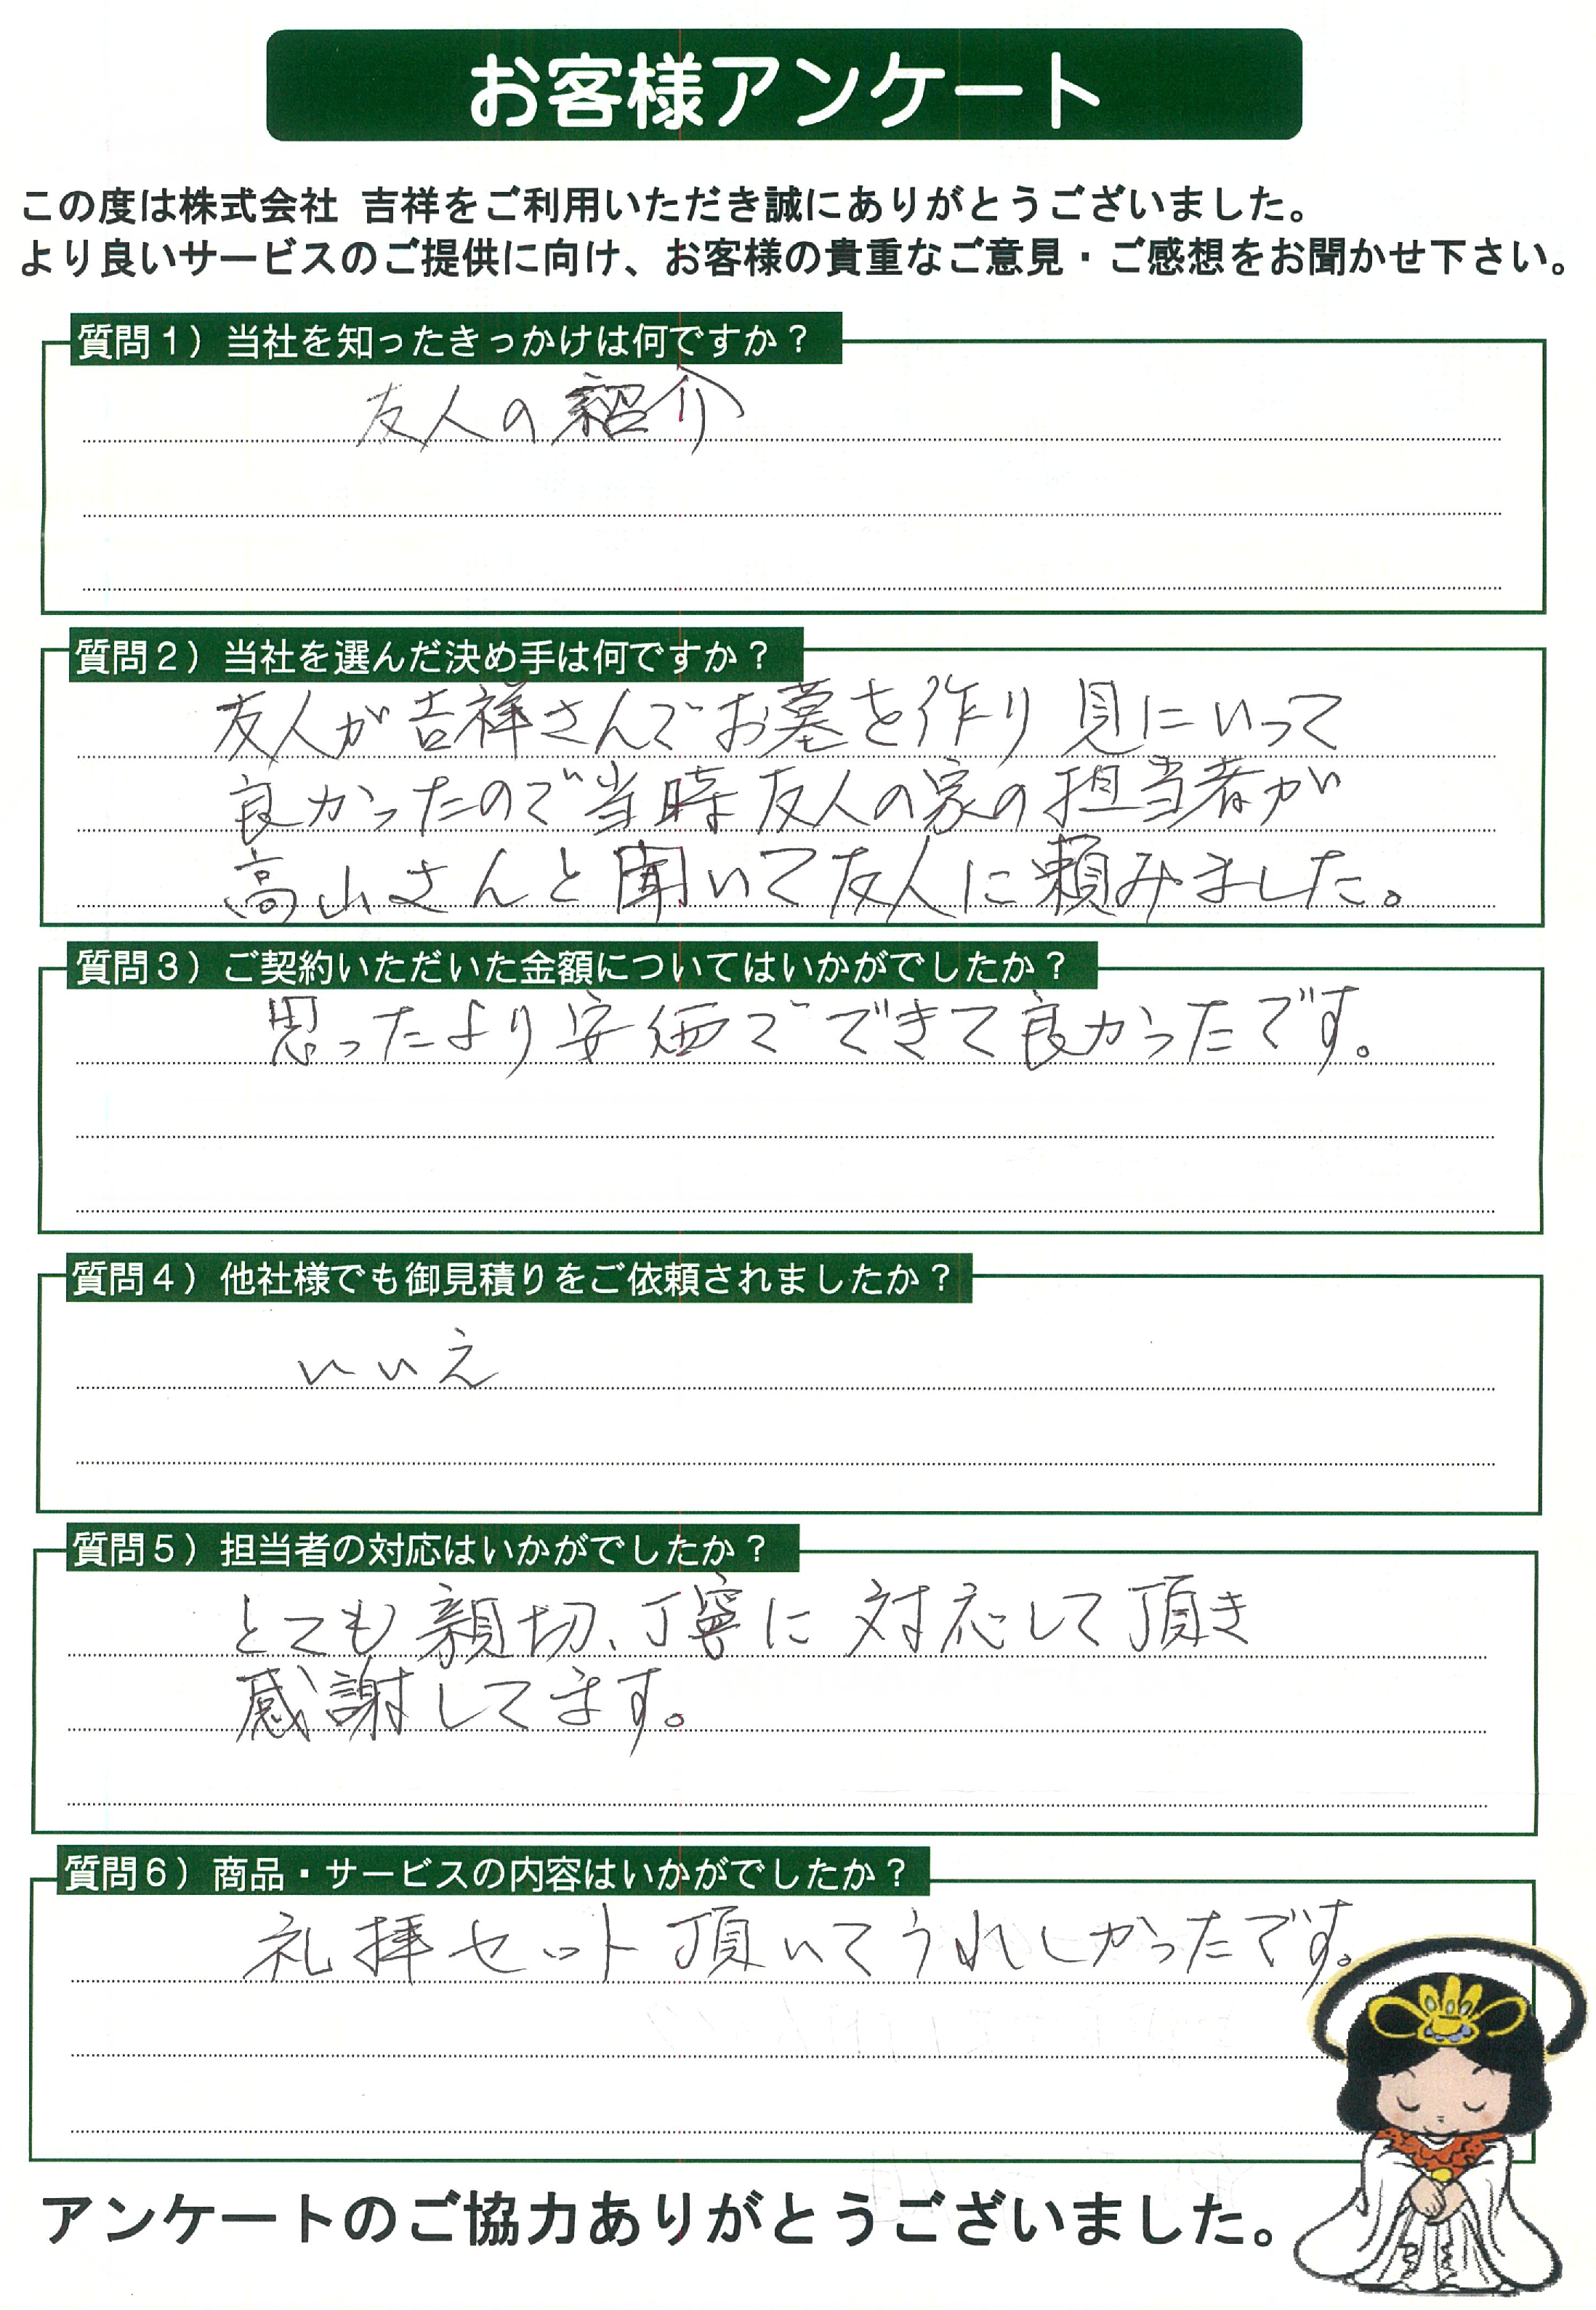 お客様アンケート
この度は株式会社 吉祥をご利用いただき誠にありがとうございました。
より良いサービスのご提供に向け、お客様の貴重なご意見・ご感想をお聞かせ下さい。
質問1）当社を知ったきっかけは何ですか？
友人の紹介
質問2）当社を選んだ決め手は何ですか？
友人が吉祥さんでお墓を作り見にいって
良かったので当時友人の家の担当者が
高山さんと聞いて友人に頼みました。
質問3）ご契約いただいた金額についてはいかがでしたか？
思ったより安価でできて良かったです。
質問4）他社様でも御見積りをご依頼されましたか？
いいえ
質問5）担当者の対応はいかがでしたか？
とても親切、丁寧に対応して頂き
感謝してます。
質問6）商品・サービスの内容はいかがでしたか？
礼拝セット頂いてうれしかったです。
アンケートのご協力ありがとうございました。